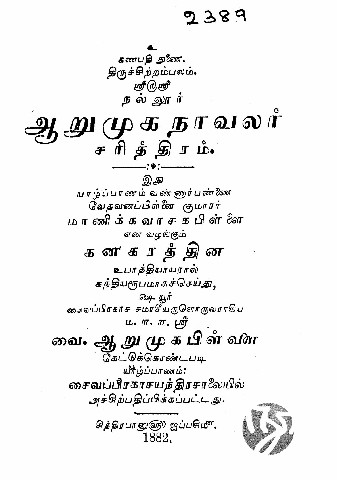 2389
உ
கணபதி துணை.
திருச்சிற்றம்பலம்.
ஸ்ரீலஸ்ரீ
நல்லூர்
ஆறுமுகநாவலர்
சரித்திரம்.
இது
யாழ்ப்பாணம் வண்ணார்பண்ணை
வேதவனப்பிள்ளை குமாரர்
மாணிக்கவாசகபிள்ளை
என வழங்கும்
கனகரத்தின
உபாத்தியாயரால்
கத்தியரூபமாகச்செய்து,
ஷ யூர்
சைவப்பிரகாச சமாசீயருளொருவராகிய
ம. ள. ள. ஸ்ரீ
வை. ஆறுமுகபிள்ளை
கேட்டுக்கொண்டபடி
யாழ்ப்பாணம்:
சைவப்பிரகாசயந்திரசாலையில்
அச்சிற்பதிப்பிக்கப்பட்டது.
சித்திரபானு௵ ஐப்பசி௴.
1882.